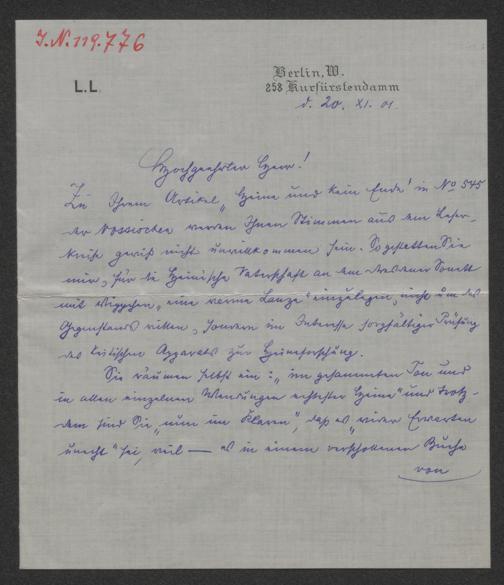 J.N. 119.776
L.L.
Berlin, W.
258 Kurfürstendamm
d. 20. XI. 01
Hochgeehrter Herr!
Zu Ihrem Artikel „Heine und kein Ende" in No 545
der Vossischen werden Ihnen Stimmen aus dem Leser-
kreise gewiß nicht unwillkommen sein. So gestatten Sie
mir, für die Heinische Vaterschaft an dem Dresdener Sonett
mit Wippchen „eine reine Lanze" einzulegen, nicht um des
Gegenstands willen, sondern im Interesse sorgfältiger Prüfung
des kritischen Apparats zur Heineforschung.
Sie räumen selbst ein: „im gesammten Ton und
in allen einzelnen Wendungen echtester Heine" und trotz-
dem sind Sie „nun im Klaren", daß es „wider Erwarten
unecht" sei, weil — es in einem verschollenen Buche
von